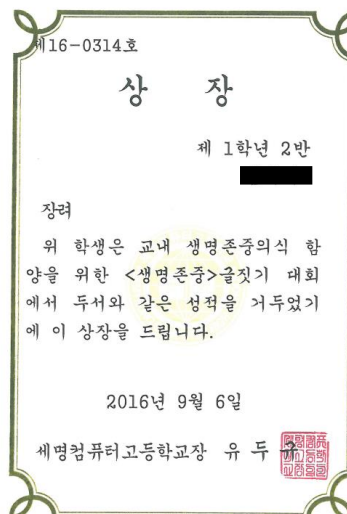 제16-0314호
상 장
제 1학년 2반
장려
위 학생은 교내 생명존중의식 함
양을 위한 <생명존중>글짓기 대회
에서 두서와 같은 성적을 거두었기
에 이 상장을 드립니다.
2016년 9월 6일
세명컴퓨터고등학교장 유 두 규